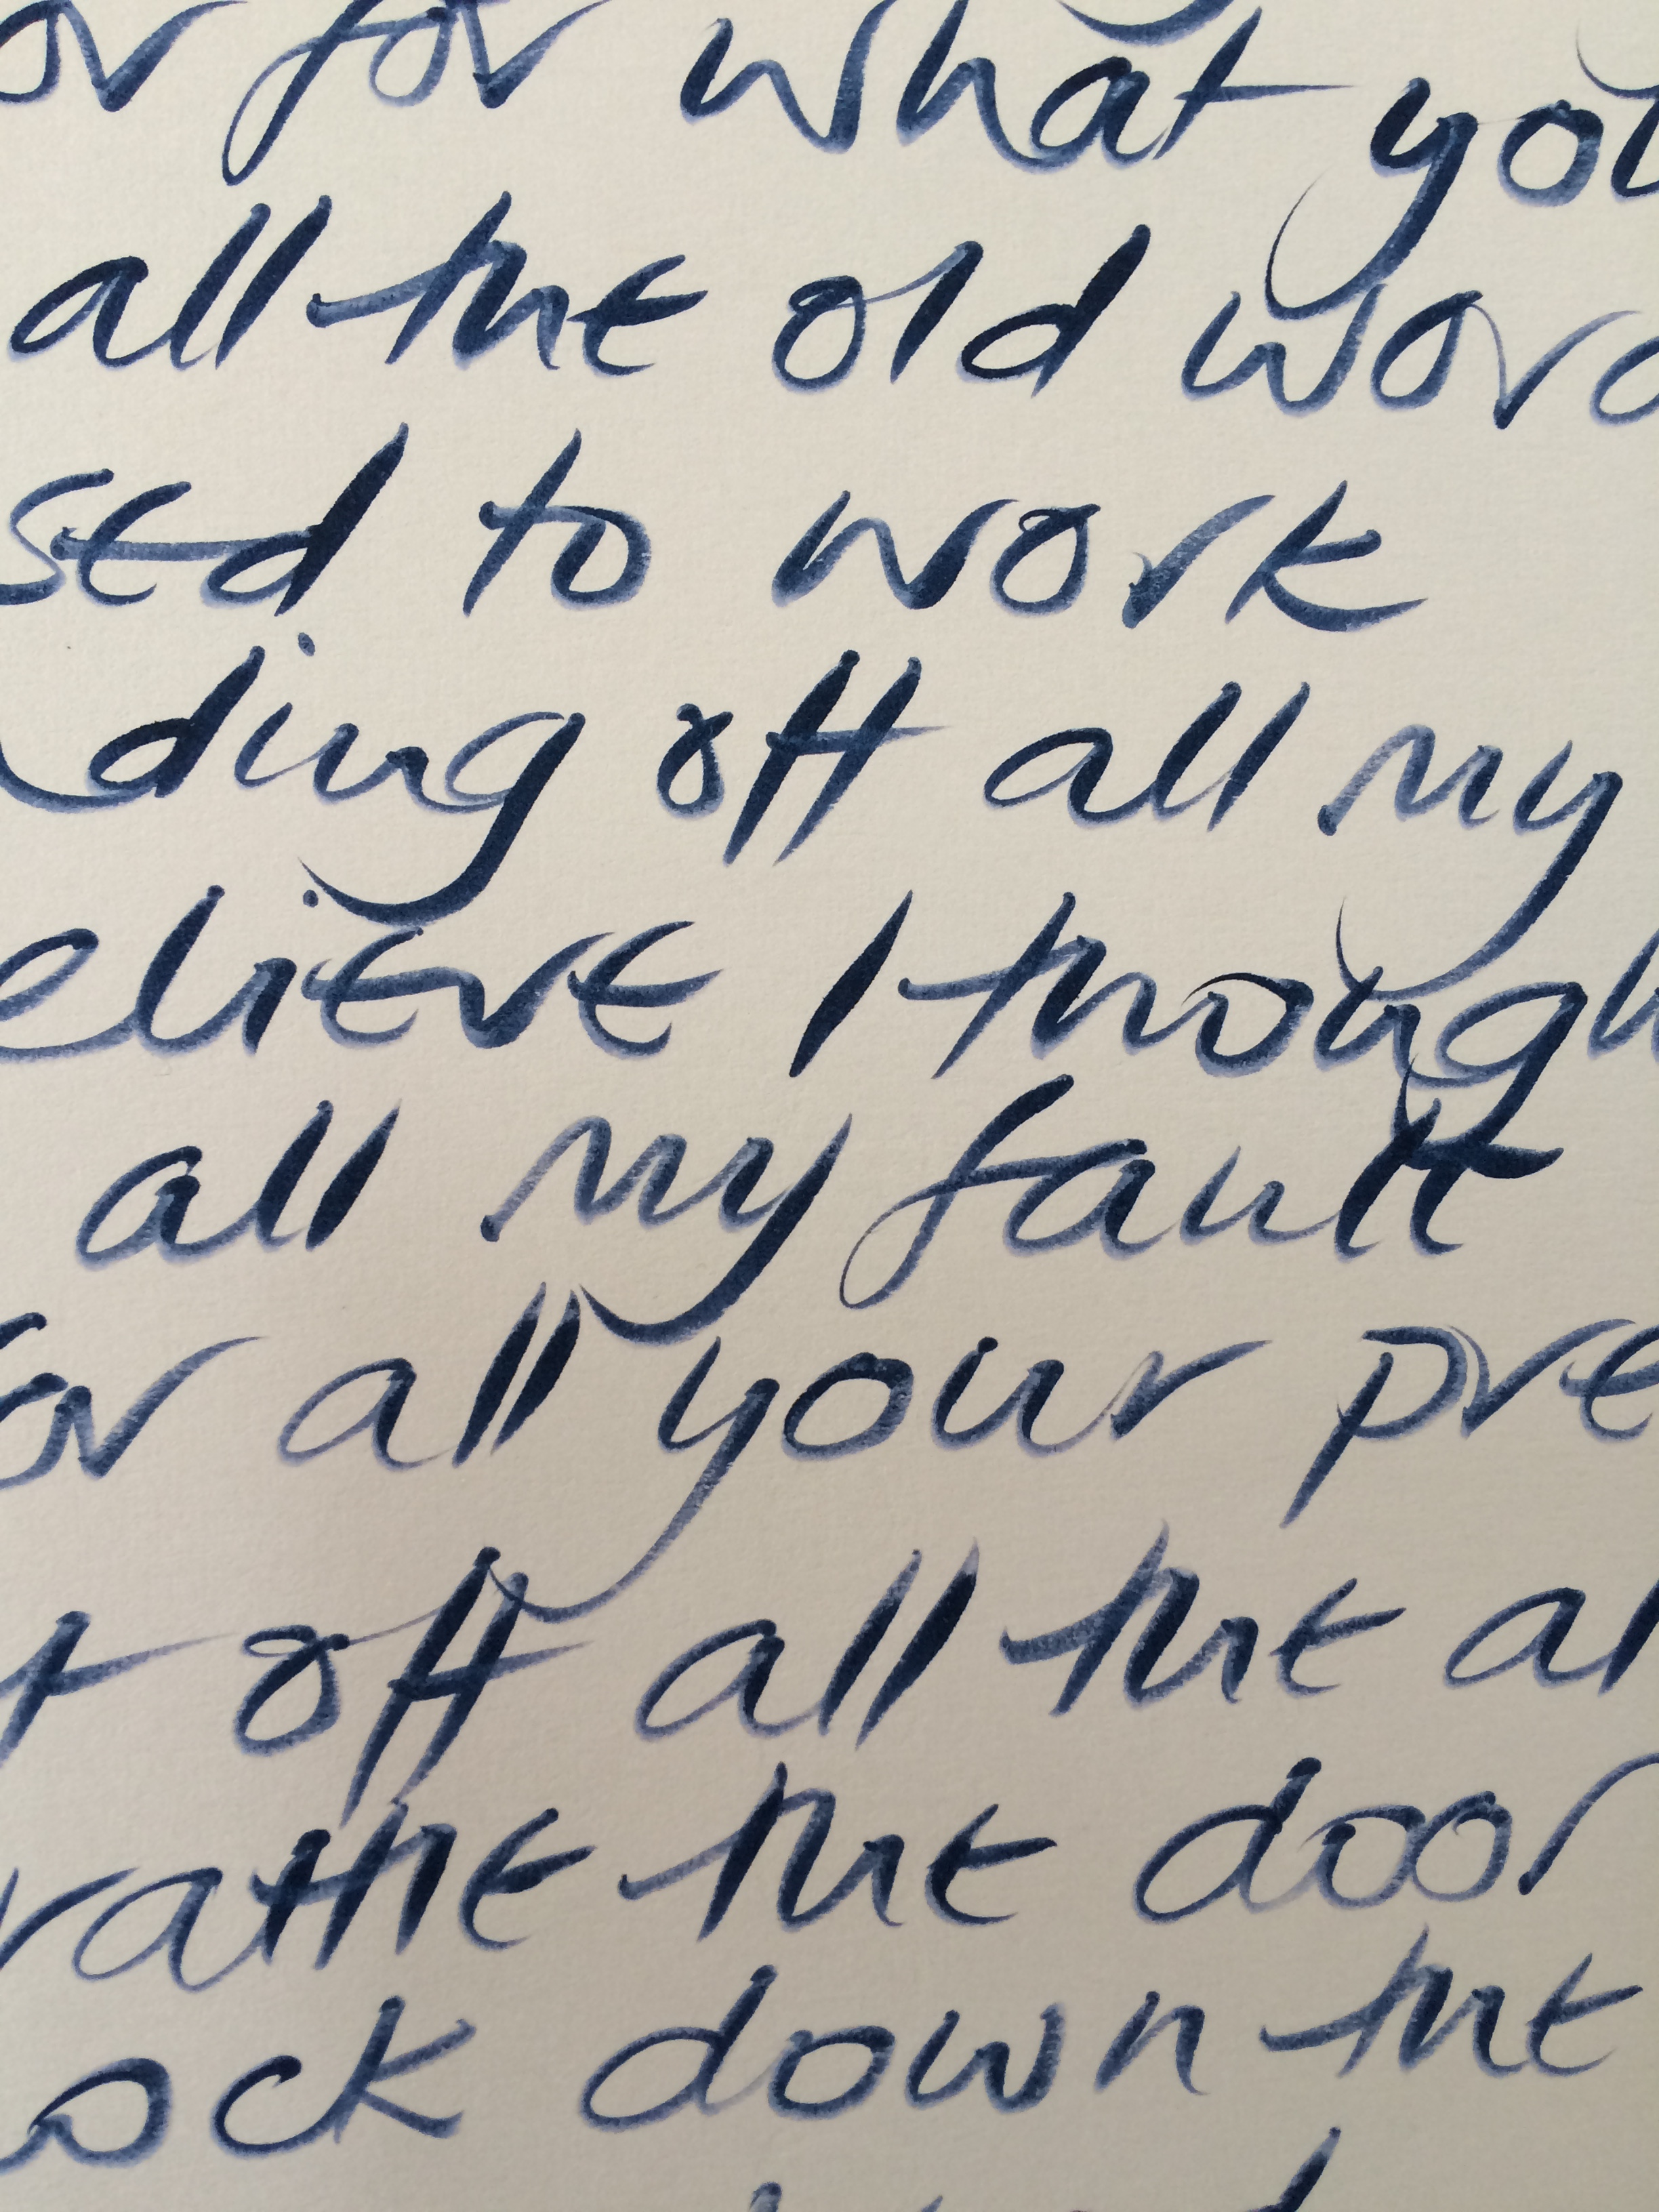 or for what you
all the old word
sed to work
ding off all my
elieve I though
all my fault
for all your pre
t off all the al
rattle the door
ock down the